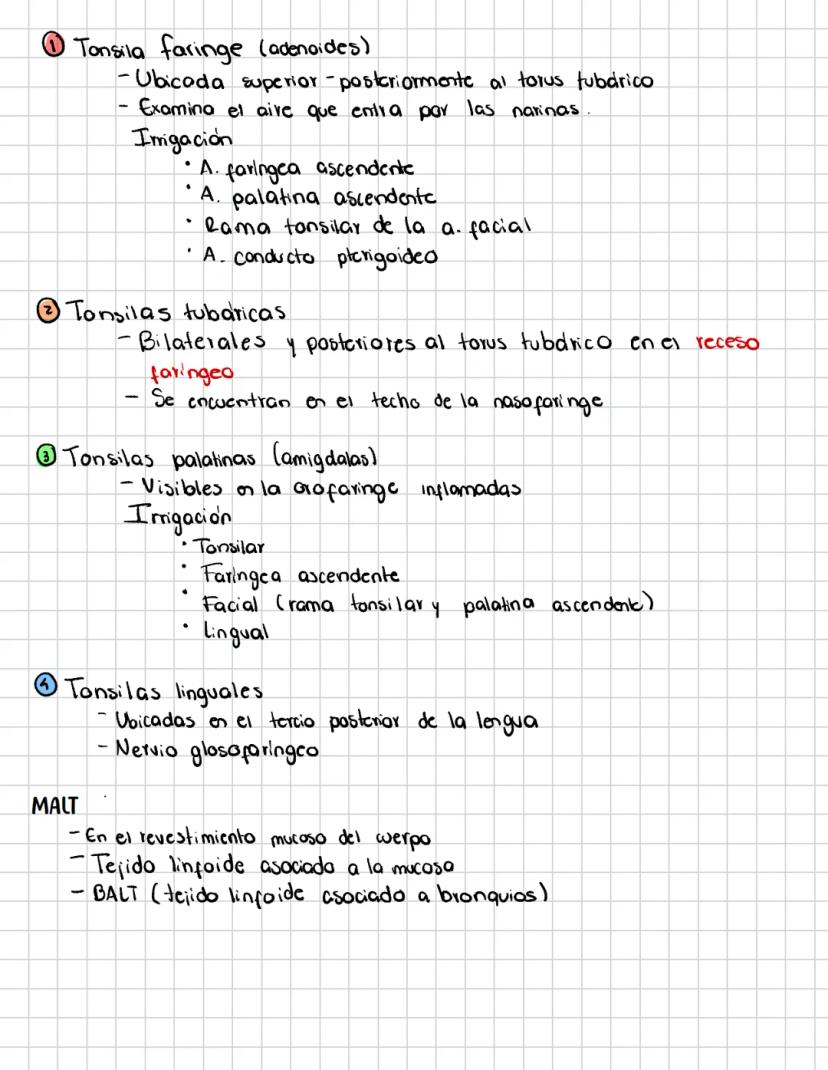 1 Tonsila faringe (adenoides)
- Ubicada superior-posteriormente al torus tubárico
- Examina el aire que entra por las narinas.
Irrigación
· A. faríngea ascendente
· A. palatina ascendente
· Rama tonsilar de la a. facial
· A. conducto pterigoideo
2 Tonsilas tubáricas
- Bilaterales y posteriores al torus tubárico en el receso
faríngeo
- Se encuentran en el techo de la nasofaringe
3 Tonsilas palatinas (amígdalas)
- Visibles en la orofaringe inflamadas
Irrigación
· Tonsilar
· Faríngea ascendente
· Facial (rama tonsilar y palatina ascendente)
· Lingual
4 Tonsilas linguales
- Ubicadas en el tercio posterior de la lengua
- Nervio glosofaríngeo
MALT
- En el revestimiento mucoso del cuerpo
- Tejido linfoide asociado a la mucosa
- BALT (tejido linfoide asociado a bronquios)